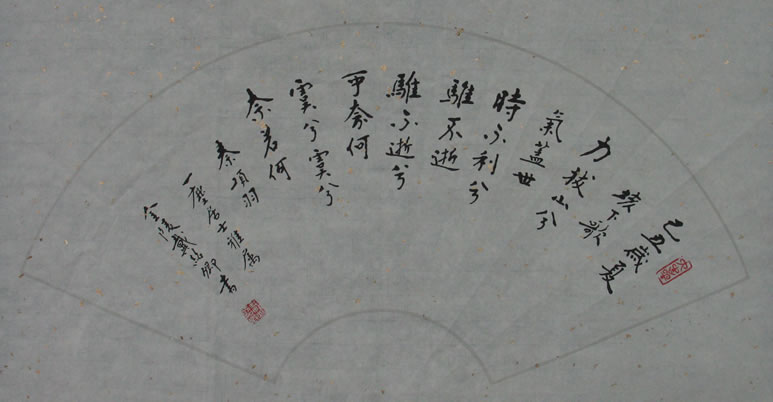 己丑歲夏
垓下歌
力拔山兮
氣蓋世
時不利兮
騅不逝
騅不逝兮
可奈何
虞兮虞兮
奈若何
秦項羽
一塵居士雅屬
金陵戴紹卿書